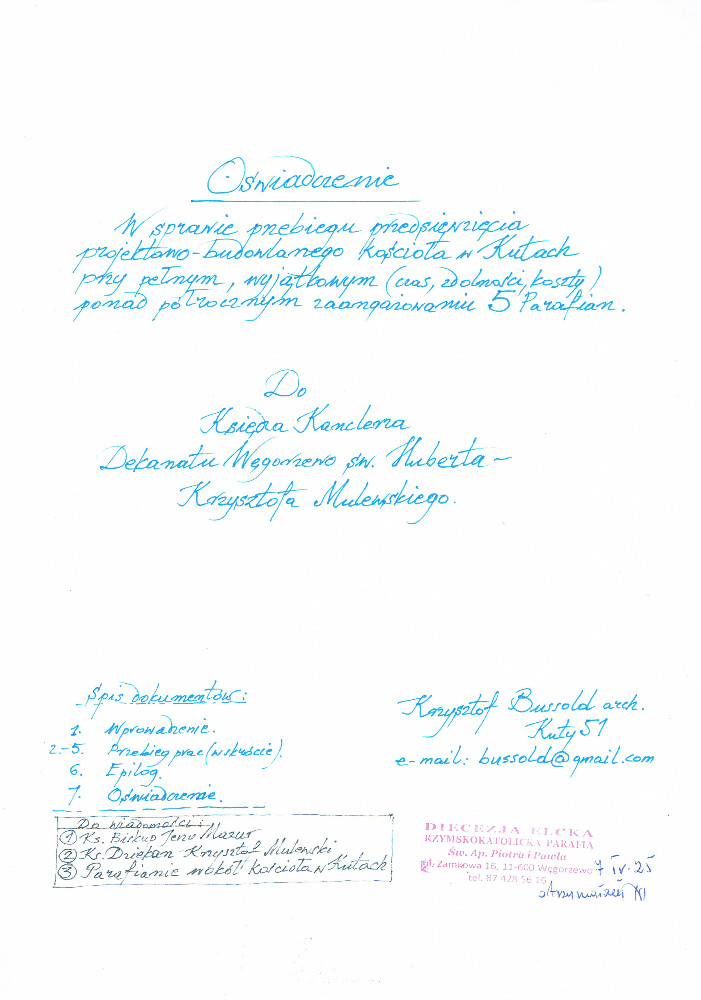 Oświadczenie
W sprawie przebiegu przedsięwzięcia
projektowo-budowlanego kościoła w Kutach
przy pełnym, wyjątkowym (czas, zdolności, koszty)
ponad półrocznym zaangażowaniu 5 Parafian.
Do
Księdza Kanclerza
Dekanatu Węgorzewo św. Huberta –
Krzysztofa Mulewskiego.
Spis dokumentów:
1. Wprowadzenie.
2.-5. Przebieg prac (w skrócie).
6. Epilog.
7. Oświadczenie.
Krzysztof Bussold arch.
Kuty 51
e-mail: bussold@gmail.com
Do wiadomości:
1 Ks. Biskup Jerzy Mazur
2 Ks. Dziekan Krzysztof Mulewski
3 Parafianie wokół kościoła w Kutach
DIECEZJA EŁCKA
RZYMSKOKATOLICKA PARAFIA
Św. Ap. Piotra i Pawła
ul. Zamkowa 16, 11-600 Węgorzewo
tel. 87 428 56 16
7 IV. 25
otrzymałem